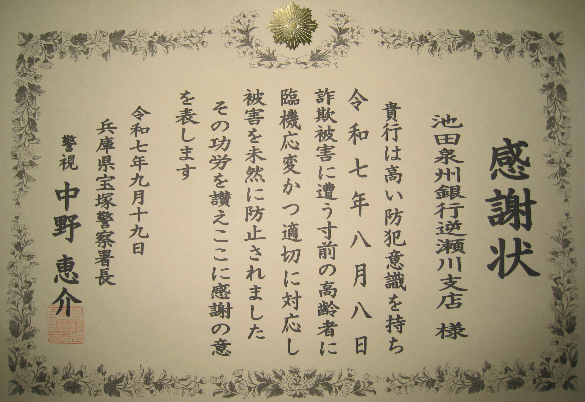 感謝状
池田泉州銀行逆瀬川支店 様
貴行は高い防犯意識を持ち
令和七年八月八日
詐欺被害に遭う寸前の高齢者に
臨機応変かつ適切に対応し
被害を未然に防止されました
その功労を讃えここに感謝の意
を表します
令和七年九月十九日
兵庫県宝塚警察署長
警視 中野 恵介